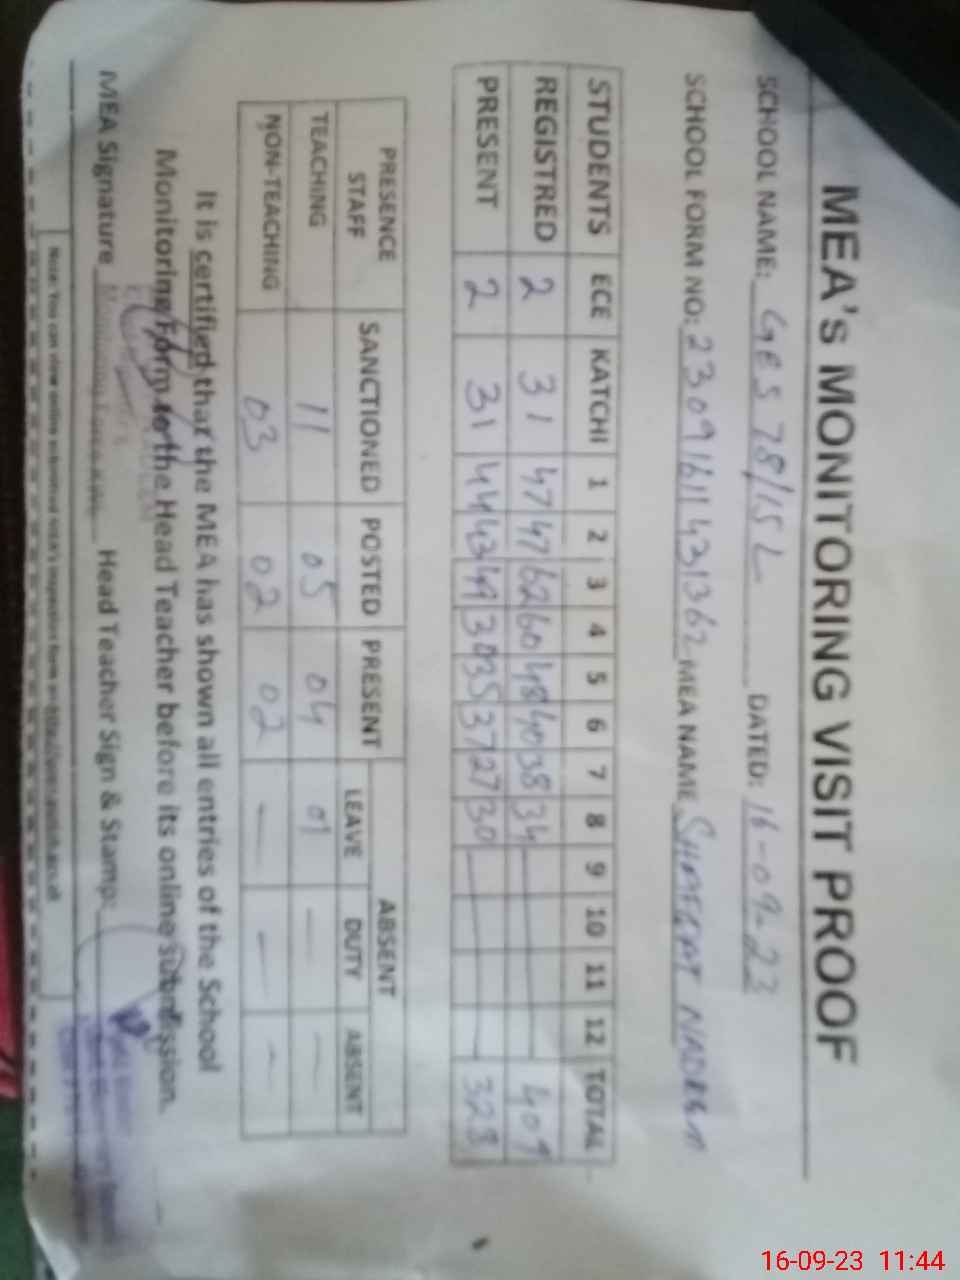 MEA's MONITORING VISIT PROOF
SCHOOL NAME: GES 78/15L DATED: 16-09-23
SCHOOL FORM NO: 23091611431362 MEA NAME
STUDENTS ECE KATCHI 1 2 3 4 5 6 7 8 9 10 11 12 TOTAL
REGISTRED 2 31 47 47 62 60 48 40 38 34 409
PRESENT 2 31 44 43 49 30 35 37 27 30 328
PRESENCE STAFF SANCTIONED POSTED PRESENT ABSENT
LEAVE DUTY ABSENT
TEACHING 11 05 04 01 — —
NON-TEACHING 03 02 02 — — —
It is certified that the MEA has shown all entries of the School
Monitoring Form to the Head Teacher before its online submission.
MEA Signature Head Teacher Sign & Stamp:
Note: You can view online
16-09-23 11:44